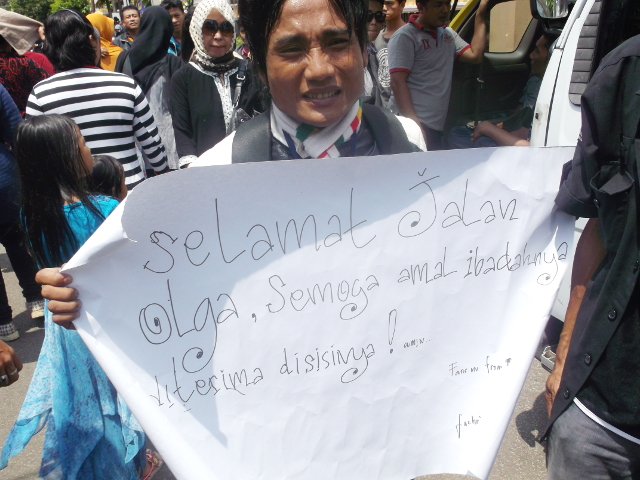 Selamat Jalan
Olga, Semoga amal ibadahnya
diterima disisinya! amin..
from